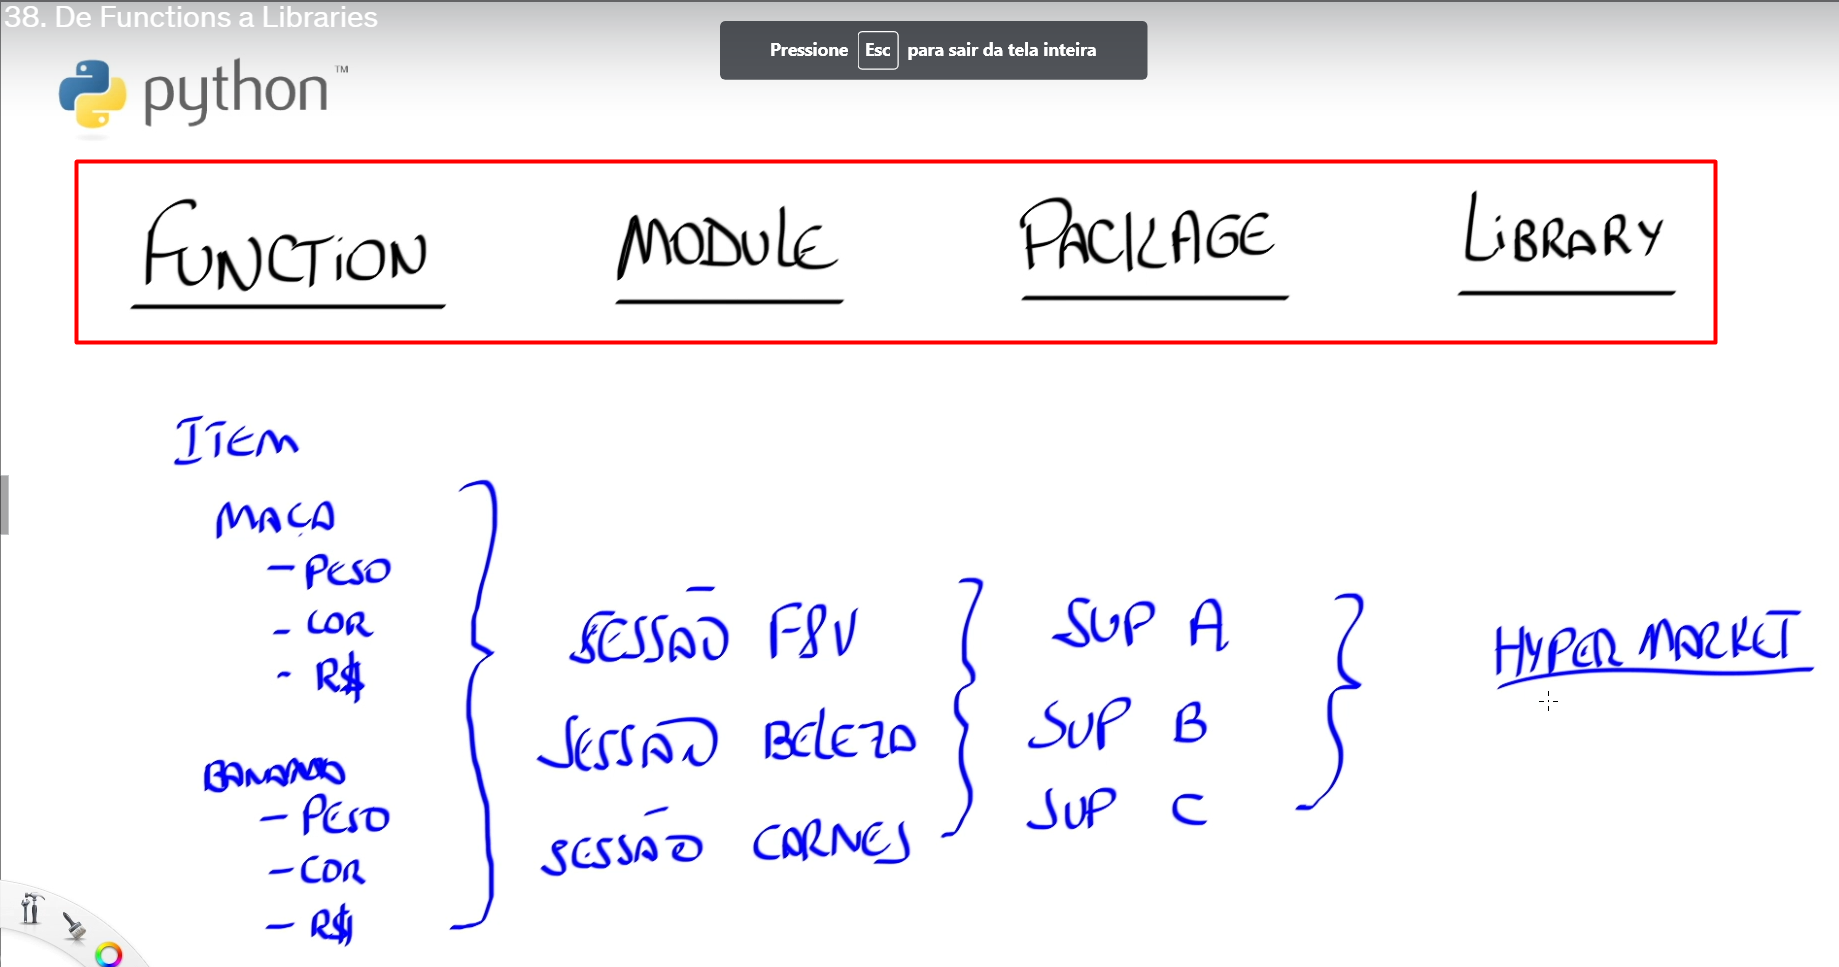 38. De Functions a Libraries
Pressione Esc para sair da tela inteira
python™
FUNCTION MODULE PACKAGE LIBRARY
ITEM
MAÇA
- PESO
- COR
- R$
BANANA
- PESO
- COR
- R$
SESSÃO F&V
SESSÃO BELEZA
SESSÃO CARNES
SUP A
SUP B
SUP C
HYPER MARKET